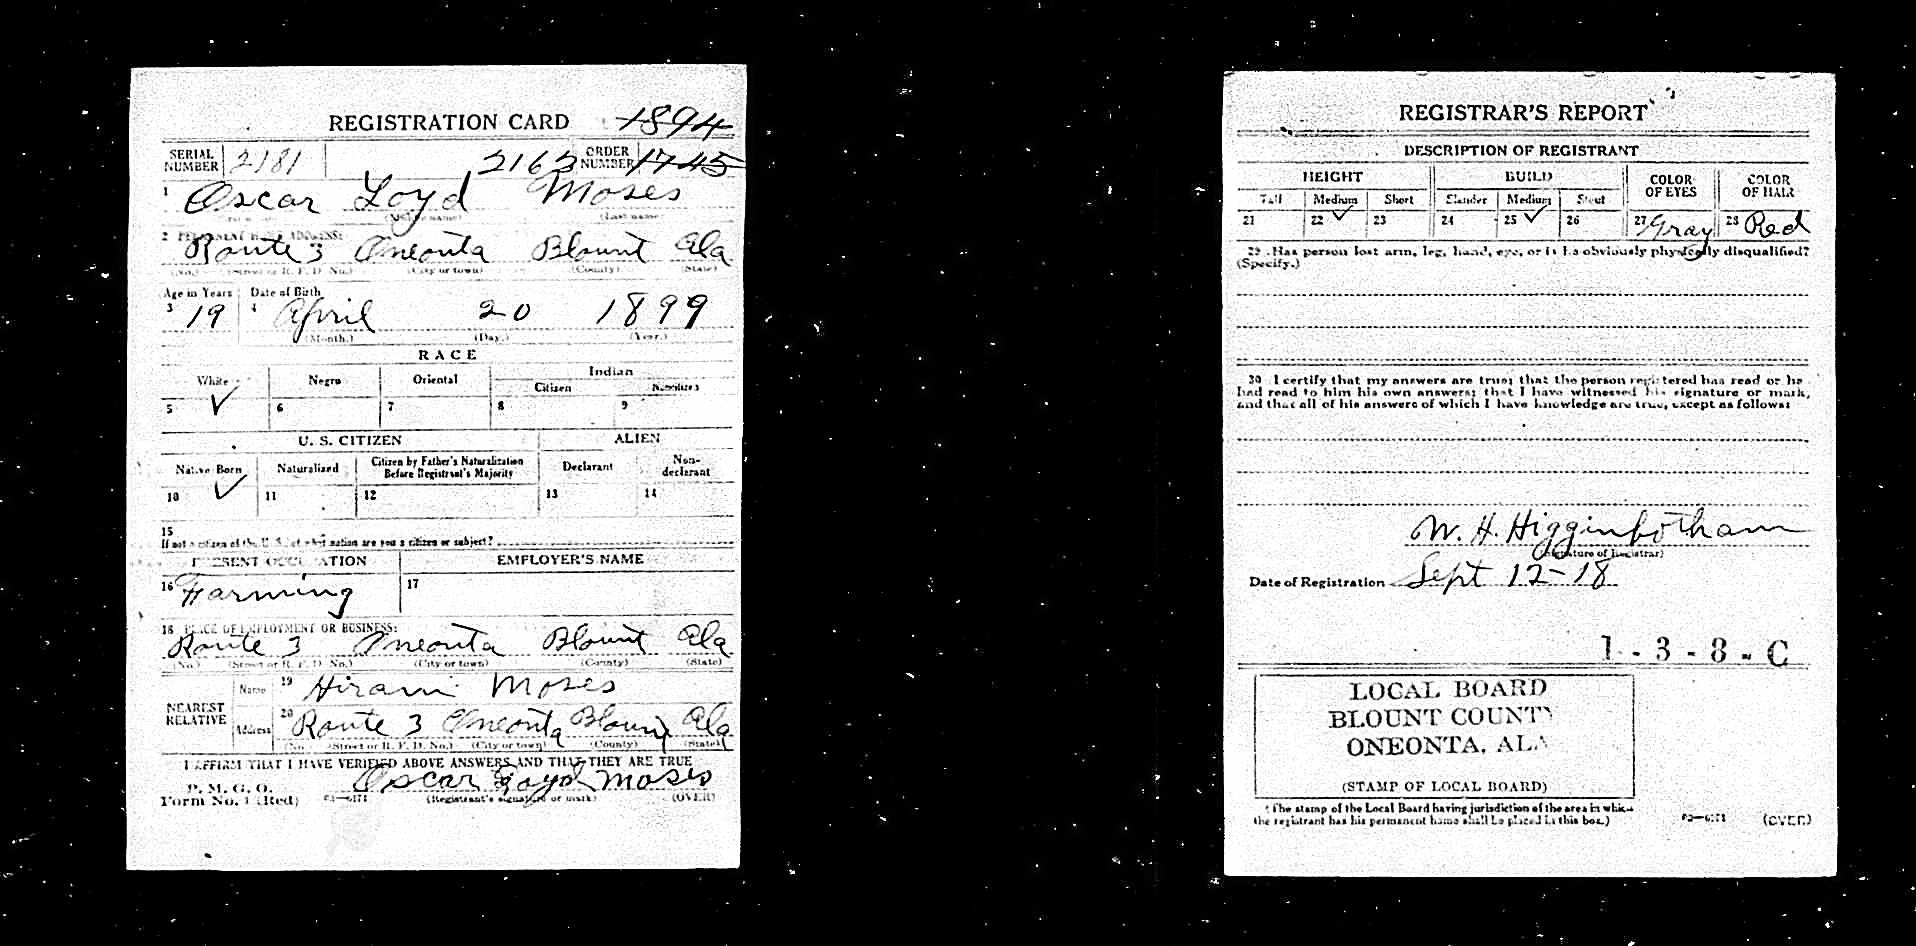 REGISTRATION CARD 1894
SERIAL NUMBER 2181 2163 ORDER NUMBER 1745
1 Oscar Loyd Moses
(Last name)
2 PERMANENT HOME ADDRESS:
Route 3 Oneonta Blount Ala
(No.) (Street or R. F. D. No.) (City or town) (County) (State)
Age in Years Date of Birth
3 19 4 April 20 1899
(Month.) (Day.) (Year.)
RACE
White Negro Oriental Indian
Citizen Noncitizen
5 ✓ 6 7 8 9
U. S. CITIZEN ALIEN
Native Born Naturalized Citizen by Father's Naturalization Before Registrant's Majority Declarant Non-declarant
10 ✓ 11 12 13 14
15
If not a citizen of the U. S., of what nation are you a citizen or subject?
PRESENT OCCUPATION EMPLOYER'S NAME
16 Farming 17
18 PLACE OF EMPLOYMENT OR BUSINESS:
Route 3 Oneonta Blount Ala
(No.) (Street or R. F. D. No.) (City or town) (County) (State)
NEAREST RELATIVE Name 19 Hiram Moses
Address 20 Route 3 Oneonta Blount Ala
(No.) (Street or R. F. D. No.) (City or town) (County) (State)
I AFFIRM THAT I HAVE VERIFIED ABOVE ANSWERS AND THAT THEY ARE TRUE
P. M. G. O.
Form No. 1 (Red) Oscar Loyd Moses
(Registrant's signature or mark) (OVER)
REGISTRAR'S REPORT
DESCRIPTION OF REGISTRANT
HEIGHT BUILD COLOR OF EYES COLOR OF HAIR
Tall Medium Short Slender Medium Stout
21 22 ✓ 23 24 25 ✓ 26 27 Gray 28 Red
29 Has person lost arm, leg, hand, eye, or is he obviously physically disqualified?
(Specify.)
30 I certify that my answers are true; that the person registered has read or has
had read to him his own answers; that I have witnessed his signature or mark,
and that all of his answers of which I have knowledge are true, except as follows:
W. H. Higginbotham
(Signature of Registrar)
Date of Registration Sept 12-18
1-3-8-C
LOCAL BOARD
BLOUNT COUNTY
ONEONTA, ALA
(STAMP OF LOCAL BOARD)
(The stamp of the Local Board having jurisdiction of the area in which
the registrant has his permanent home shall be placed in this box.)
03—6171 (OVER)